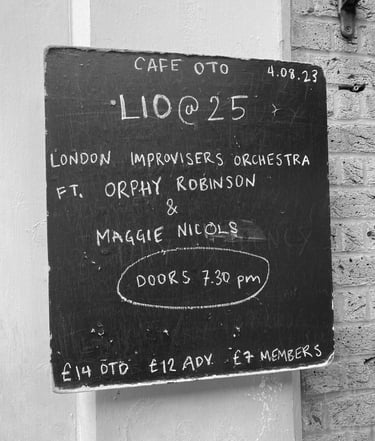 CAFE OTO
4.08.23
LIO@25
LONDON IMPROVISERS ORCHESTRA
FT. ORPHY ROBINSON
&
MAGGIE NICOLS
DOORS 7.30 pm
£14 OTD £12 ADV £7 MEMBERS